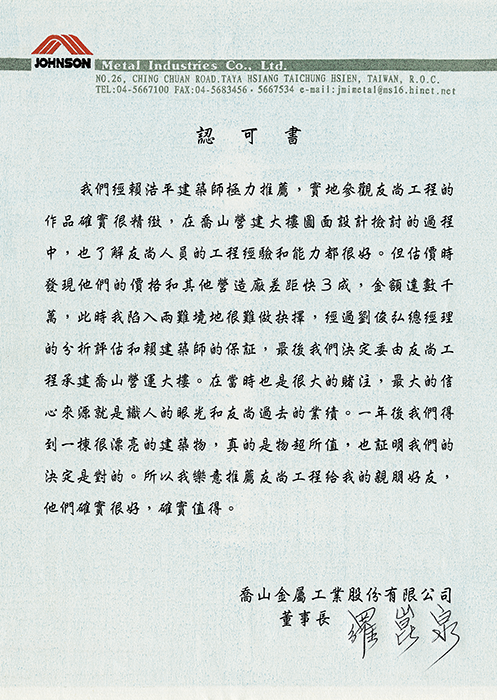 JOHNSON
Metal Industries Co., Ltd.
NO.26, CHING CHUAN ROAD.TAYA HSIANG TAICHUNG HSIEN, TAIWAN, R.O.C.
TEL:04-5667100 FAX:04-5683456・5667534 e-mail:jmimetal@ns16.hinet.net
認可書
我們經賴浩平建築師極力推薦，實地參觀友尚工程的
作品確實很精緻，在喬山營建大樓圖面設計檢討的過程
中，也了解友尚人員的工程經驗和能力都很好。但估價時
發現他們的價格和其他營造廠差距快3成，金額達數千
萬，此時我陷入兩難境地很難做抉擇，經過劉俊弘總經理
的分析評估和賴建築師的保証，最後我們決定委由友尚工
程承建喬山營運大樓。在當時也是很大的賭注，最大的信
心來源就是識人的眼光和友尚過去的業績。一年後我們得
到一棟很漂亮的建築物，真的是物超所值，也証明我們的
決定是對的。所以我樂意推薦友尚工程給我的親朋好友，
他們確實很好，確實值得。
喬山金屬工業股份有限公司
董事長 羅崑泉